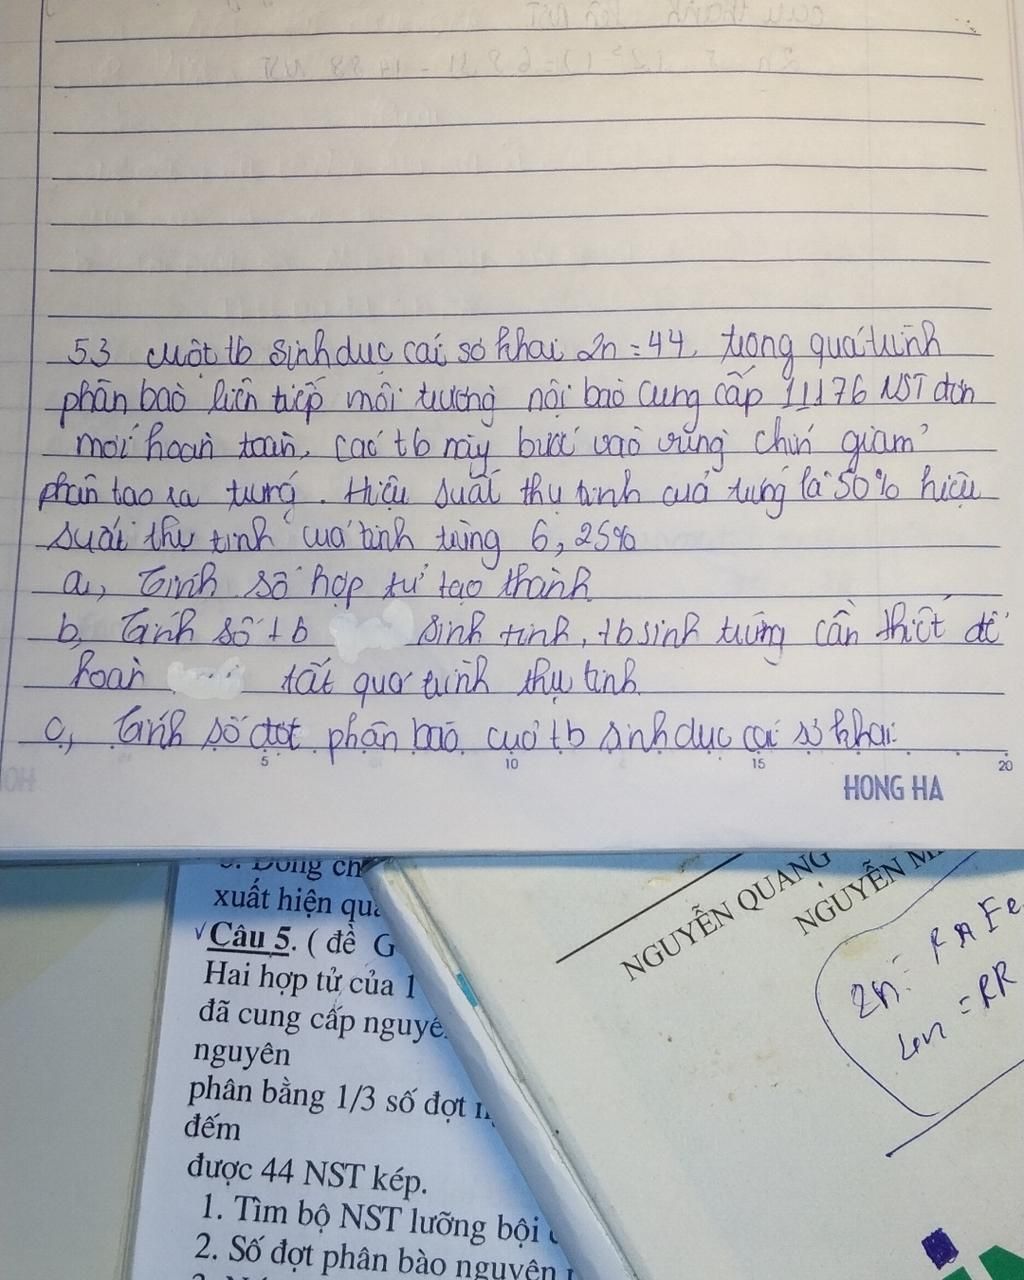 53 một tb sinh dục cái sơ khai 2n = 44. trong quá trình
phân bào liên tiếp môi trường nội bào cung cấp 11176 NST đơn
mới hoàn toàn, các tb này bước vào vùng chín giảm
phân tạo ra trứng. Hiệu suất thụ tinh của trứng là 50% hiệu
suất thụ tinh của tinh trùng 6,25%
a, Tính số hợp tử tạo thành
b, Tính số tb sinh tinh, tb sinh trứng cần thiết để
hoàn tất quá trình thụ tinh
c, Tính số đợt phân bào của tb sinh dục cái sơ khai.
5 10 15 20
HONG HA
xuất hiện
Câu 5. ( đề G
Hai hợp tử của 1
đã cung cấp
nguyên
phân bằng 1/3 số đợt
đếm
được 44 NST kép.
1. Tìm bộ NST lưỡng bội
2. Số đợt phân bào nguyên
NGUYỄN QUANG
NGUYỄN
2n =
4n = RR